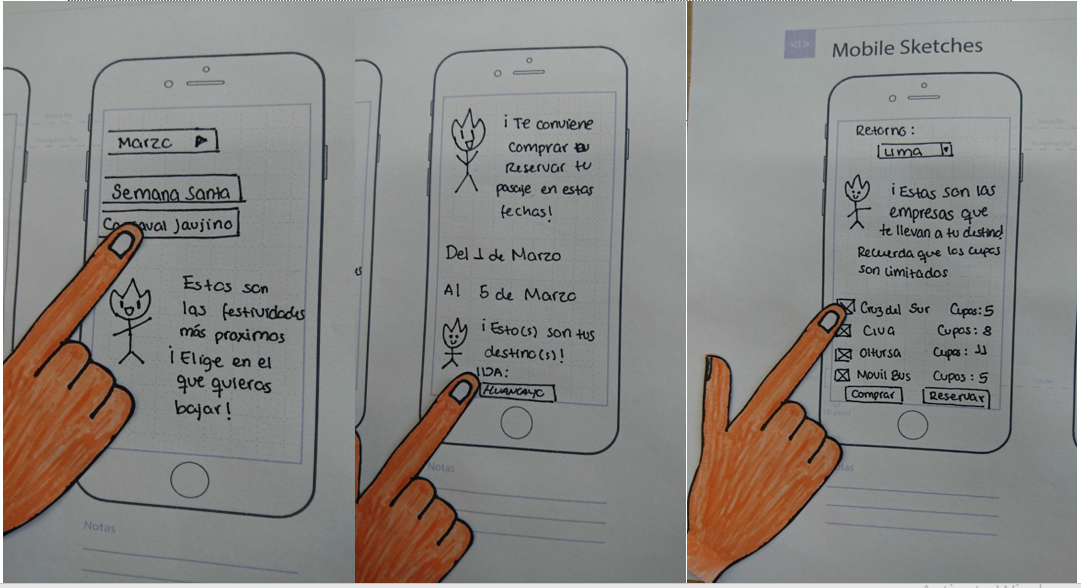 Marzo
Semana Santa
Carnaval Jaujino
Estas son
las festividades
más proximas
¡Elige en el
que quieras
bajar!
Notas
¡Te conviene
comprar
Reservar tu
pasaje en estas
fechas!
Del 1 de Marzo
Al 5 de Marzo
¡Esto(s) son tus
destino(s)!
IDA:
HUANCAYO
Notas
<i> Mobile Sketches
Retorno:
Lima
¡Estas son las
empresas que
te llevan a tu destino!
Recuerda que los cupos
son limitados
Cruz del Sur Cupos: 5
Civa Cupos: 8
Oltursa Cupos: 11
Movil Bus Cupos: 5
Comprar Reservar